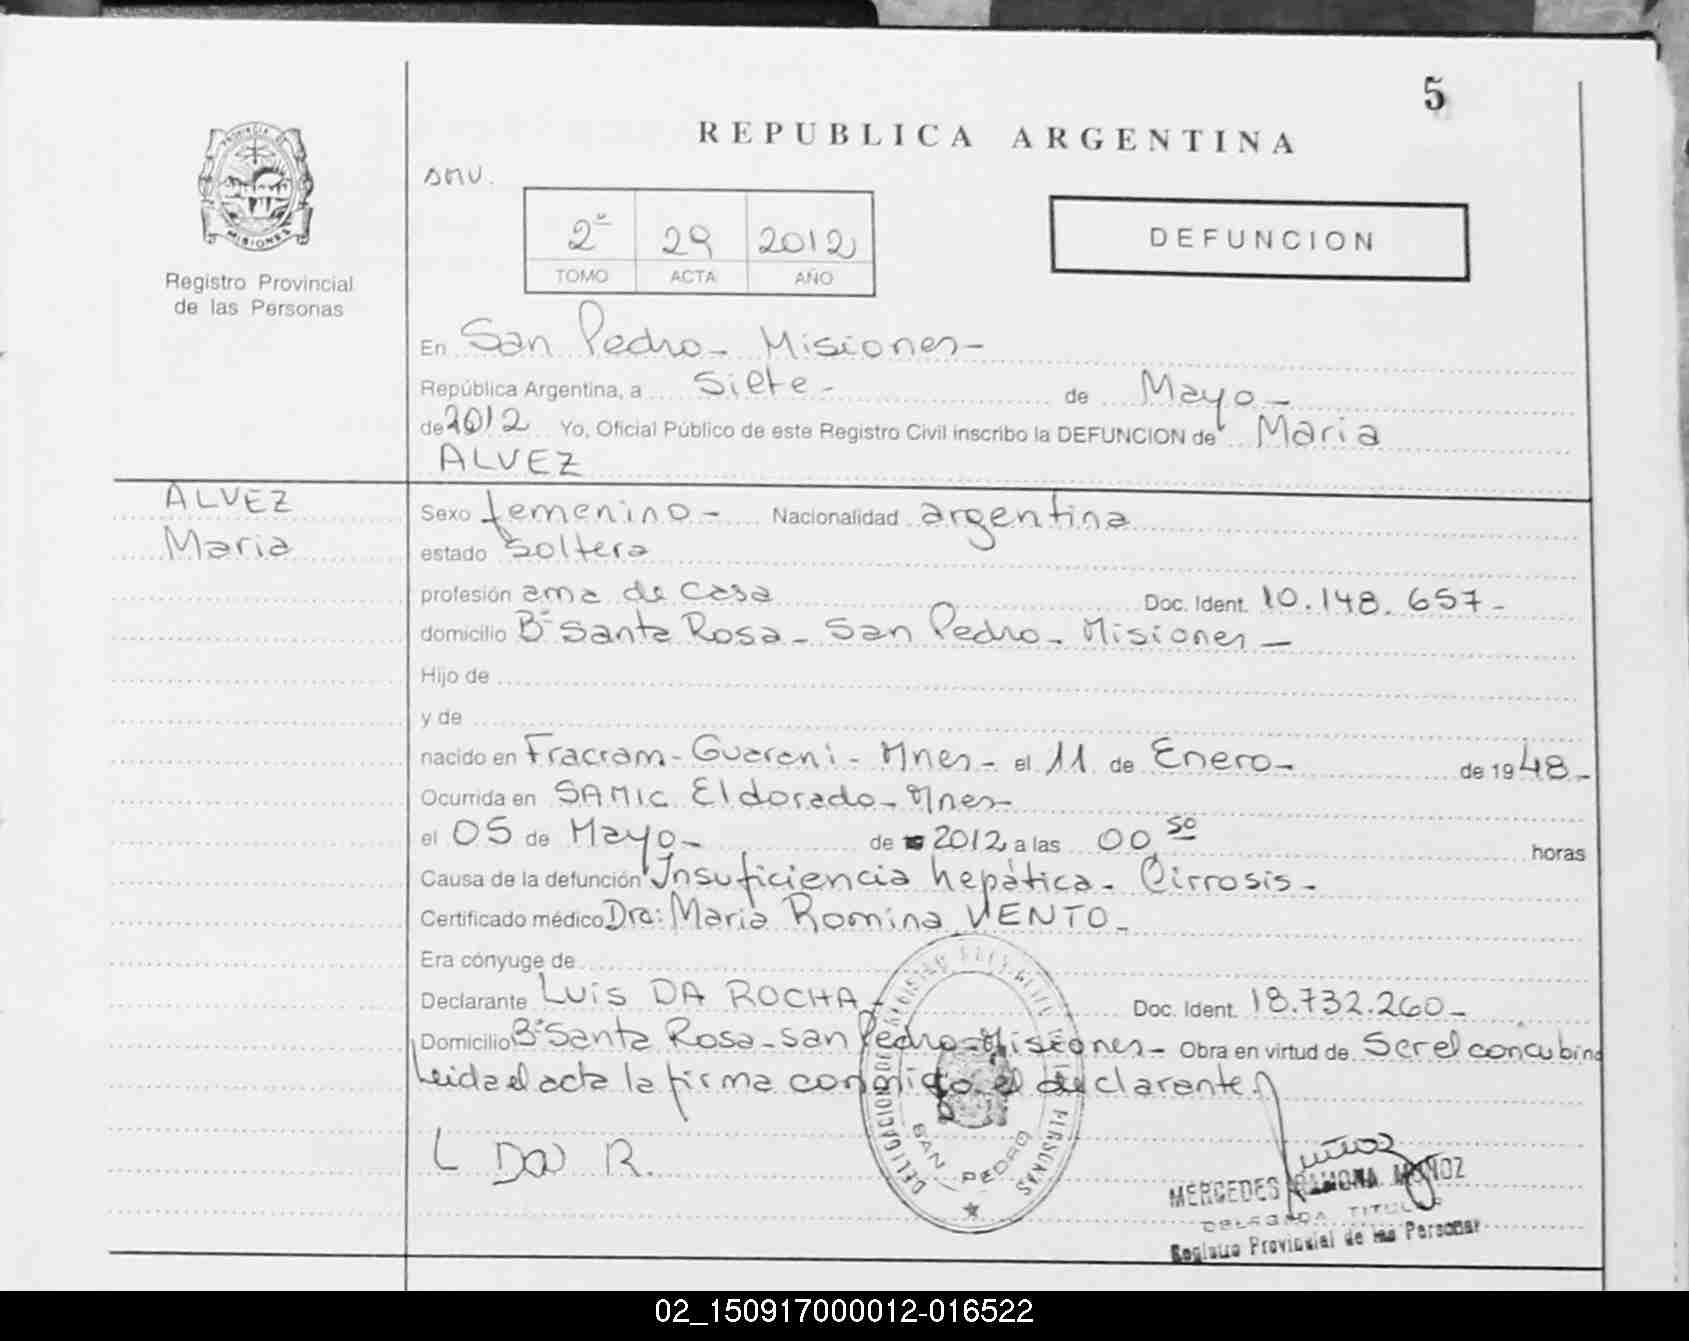 5
REPUBLICA ARGENTINA
PROVINCIA DE
MISIONES
Registro Provincial
de las Personas
SMU.
2º 29 2012
TOMO ACTA AÑO
DEFUNCION
En San Pedro - Misiones -
República Argentina, a Siete - de Mayo -
de 2012 Yo, Oficial Público de este Registro Civil inscribo la DEFUNCION de Maria
ALVEZ
ALVEZ
Maria
Sexo femenino - Nacionalidad argentina
estado Soltera
profesión ama de casa Doc. Ident. 10.148.657 -
domicilio Bº Santa Rosa - San Pedro - Misiones -
Hijo de
y de
nacido en Fracram - Guarani - Mnes - el 11 de Enero - de 1948 -
Ocurrida en SAMIC Eldorado - Mnes -
el 05 de Mayo - de 2012 a las 00 50 horas
Causa de la defunción Insuficiencia hepática - Cirrosis -
Certificado médico Dra: Maria Romina VENTO -
Era cónyuge de
Declarante Luis DA ROCHA - Doc. Ident. 18.732.260 -
Domicilio Bº Santa Rosa - San Pedro - Misiones - Obra en virtud de Ser el concubino
Leida el acta la firma conmigo el declarante
L Da R.
DELEGACION DE PERSONAS
SAN PEDRO
Muñoz
MERCEDES RAMONA MUÑOZ
DELEGADA TITULAR
Registro Provincial de las Personas
02_150917000012-016522